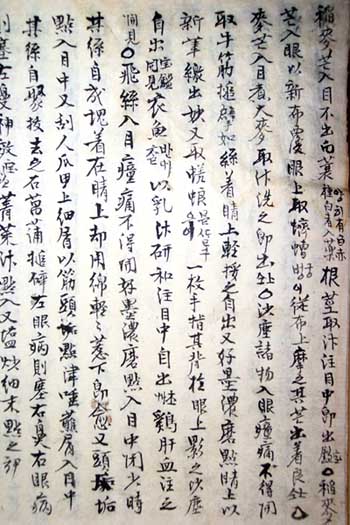 稻麥芒入目不出白蘘荷根莖取汁注目中卽出○稻麥
芒入眼以新布覆眼上取蠐螬從布上摩之其芒出着良○
麥芒入目煮大麥取汁洗之卽出○沙塵諸物入眼瞳痛不得開
取牛筋搥擘如絲着睛上輕挼之自出又好墨濃磨點睛上以
新筆繳出妙又取蜣蜋一枚手指其背於眼上影之沙塵
自出衣魚以乳汁硏和注目中自出鷄肝血注之
○飛絲入目瞳痛不得開好墨濃磨點入目中閉少時
其絲自成塊着在睛上却用綿輕輕惹下卽愈又頭垢
點入目中又刮人爪甲上細屑以筋頭點津唾蘸屑入目中
其絲自聚拔去之石菖蒲搥碎左眼病則塞右鼻右眼病
則塞左鼻神效菁菜汁點入又塩炒細末點之卽